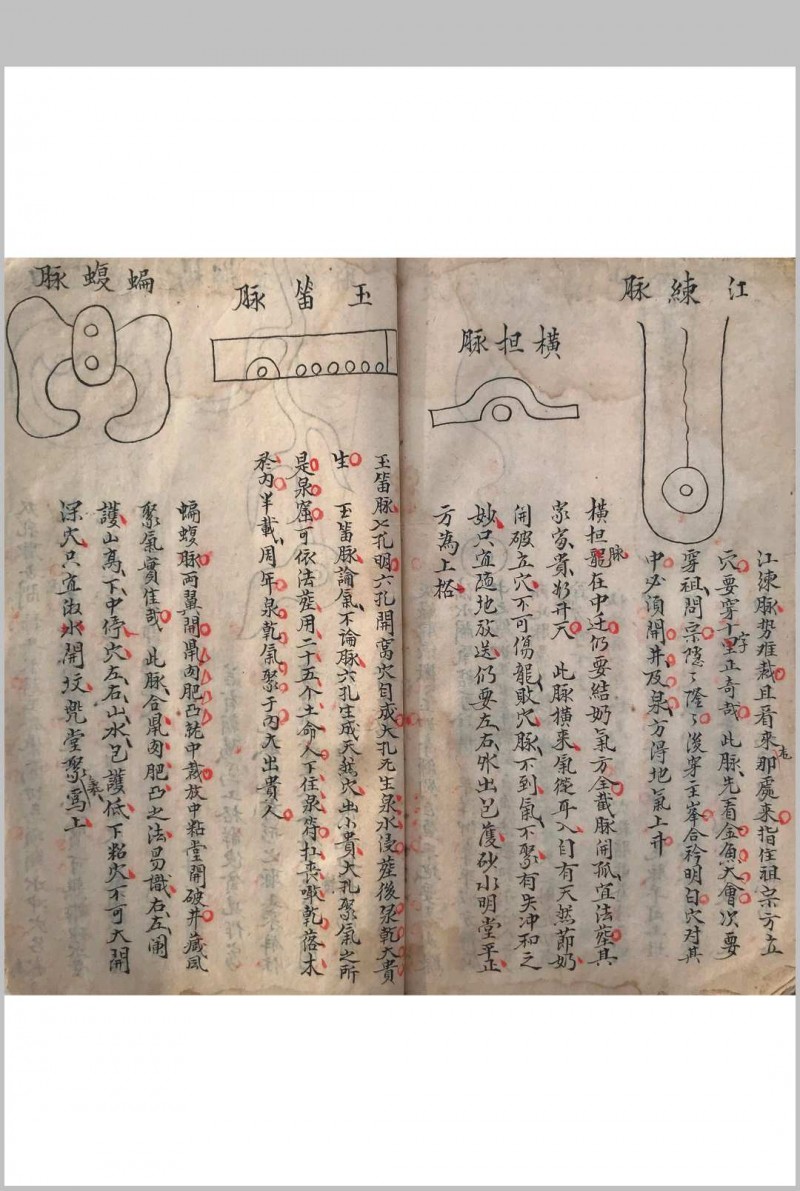 江練脉
江涑脉势难裁且看來那處來指住祖宗方立
穴要穿十字正奇哉 此脉先看金魚大會次要
穿祖問宗隱々隆々後穿主峯合衿明白穴对其
中必須開井及泉方得地氣上升
横担脉
横担脉在中迁仍要結奶氣方全截脉開孤宜法塟其
家家貴 升天 此脉横來氣從耳入目有天然節奶
開破立穴不可傷龍敗穴脉不到氣不聚有失冲和之
妙只宜随地放送仍要左右水出包護砂水明堂平正
方為上格
玉笛脉
玉笛脉七孔明六孔開窩穴自成大孔无生泉水浸塟後泉乾大貴
生 玉笛脉論氣不論脉六孔生成天然穴出小貴大孔聚氣之所
是泉窟可依法塟用二十五个土命人下住泉 乾落木
於内半載周年泉乾氣聚于内大出貴人
蝙蝮脉
蝙蝮脉両翼開鼡肉肥凸乾中裁放中粘堂開破井藏風
聚氣實佳哉 此脉合鼡肉肥凸之法易識右左開
護山高下中停穴左右山水包護低下粘穴不可大開
深穴只宜淺水開坟 堂聚 為上